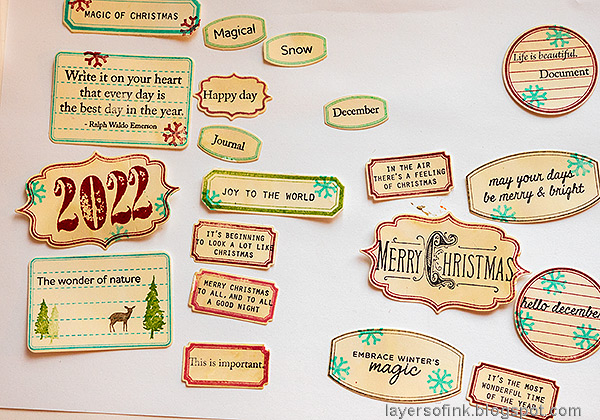 MAGIC OF CHRISTMAS
Magical
Snow
Write it on your heart
that every day is
the best day in the year.
- Ralph Waldo Emerson
Happy day
December
Journal
Life is beautiful.
Document
2022
JOY TO THE WORLD
IN THE AIR
THERE'S A FEELING
OF CHRISTMAS
may your days
be merry & bright
IT'S BEGINNING
TO LOOK A LOT LIKE
CHRISTMAS
MERRY CHRISTMAS
The wonder of nature
MERRY CHRISTMAS
TO ALL, AND TO ALL
A GOOD NIGHT
hello december
This is important.
EMBRACE WINTER'S
magic
IT'S THE MOST
WONDERFUL TIME
OF THE YEAR
layersofink.blogspot.com